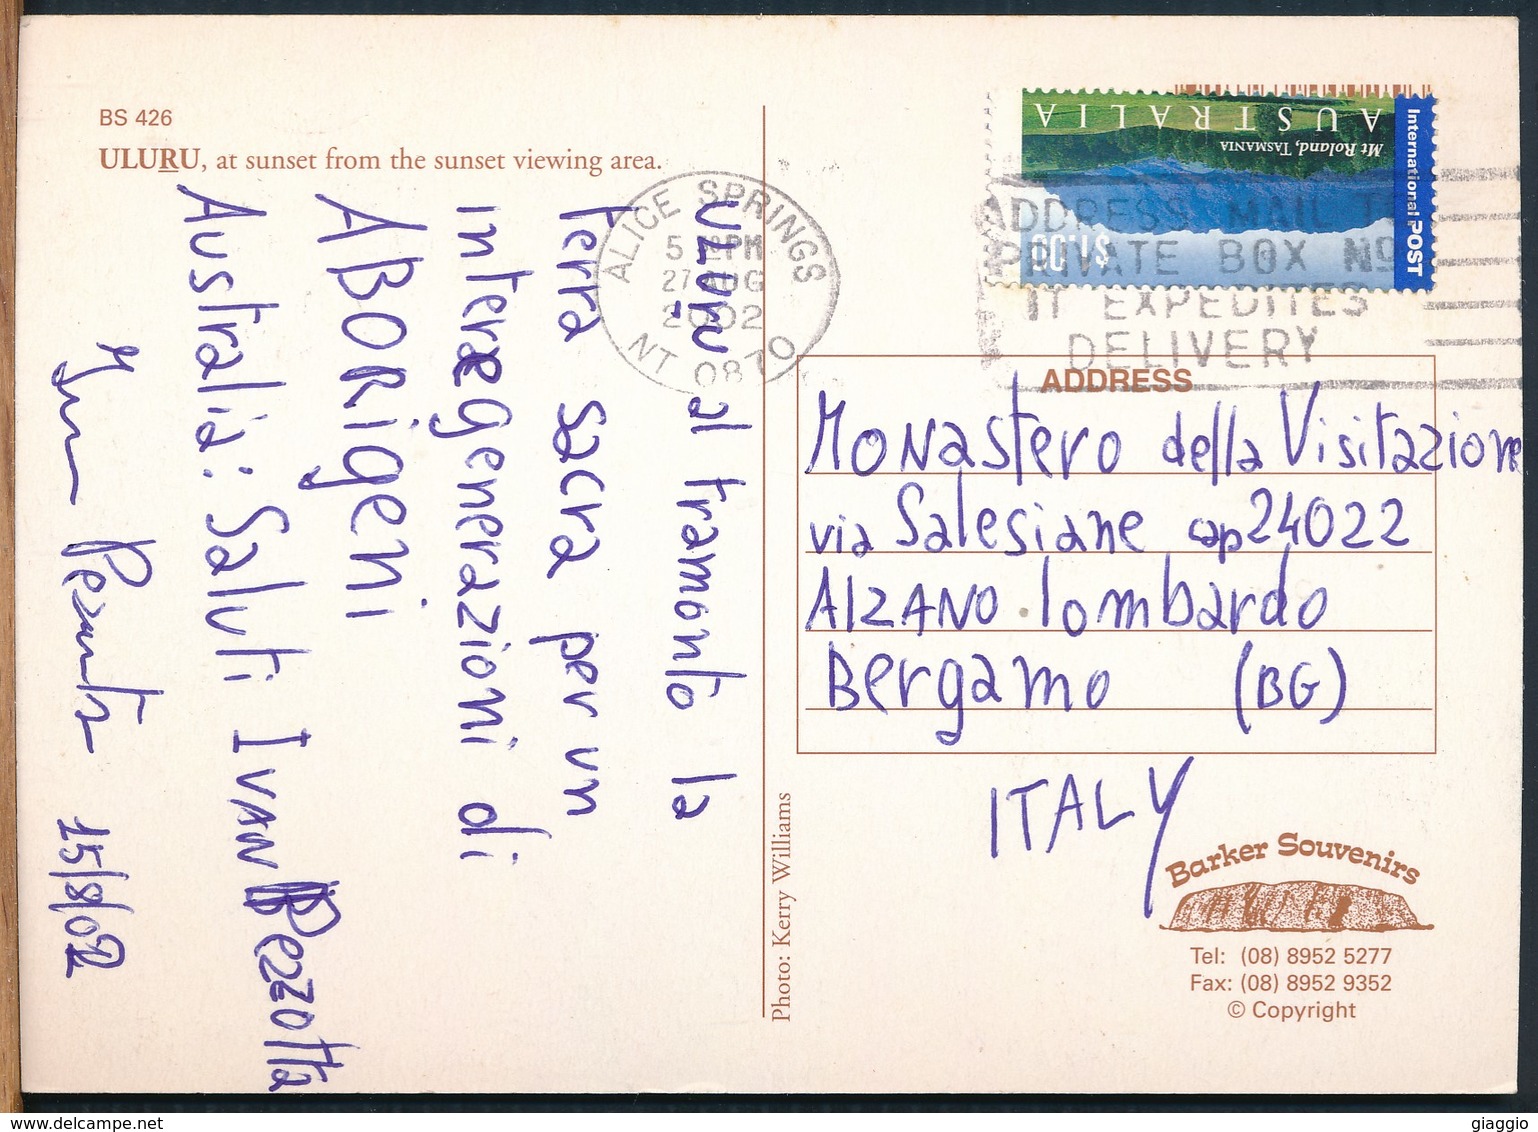 BS 426
ULURU, at sunset from the sunset viewing area.
al tramonto la
Terra Sacra per un
intere generazioni di
ABORigeni
Australia: Saluti Ivan Pezzotta
15/8/02
ALICE SPRINGS
5 PM
27 AUG
2002
NT 0870
International POST
AUSTRALIA
Mt Roland, TASMANIA
$1.00
ADDRESS MAIL TO
PRIVATE BOX No
IT EXPEDITES
DELIVERY
ADDRESS
Monastero della Visitazione
via Salesiane cap 24022
AlZANO lombardo
Bergamo (BG)
ITALY
Photo: Kerry Williams
Barker Souvenirs
Tel: (08) 8952 5277
Fax: (08) 8952 9352
© Copyright
delcampe.net
giaggio